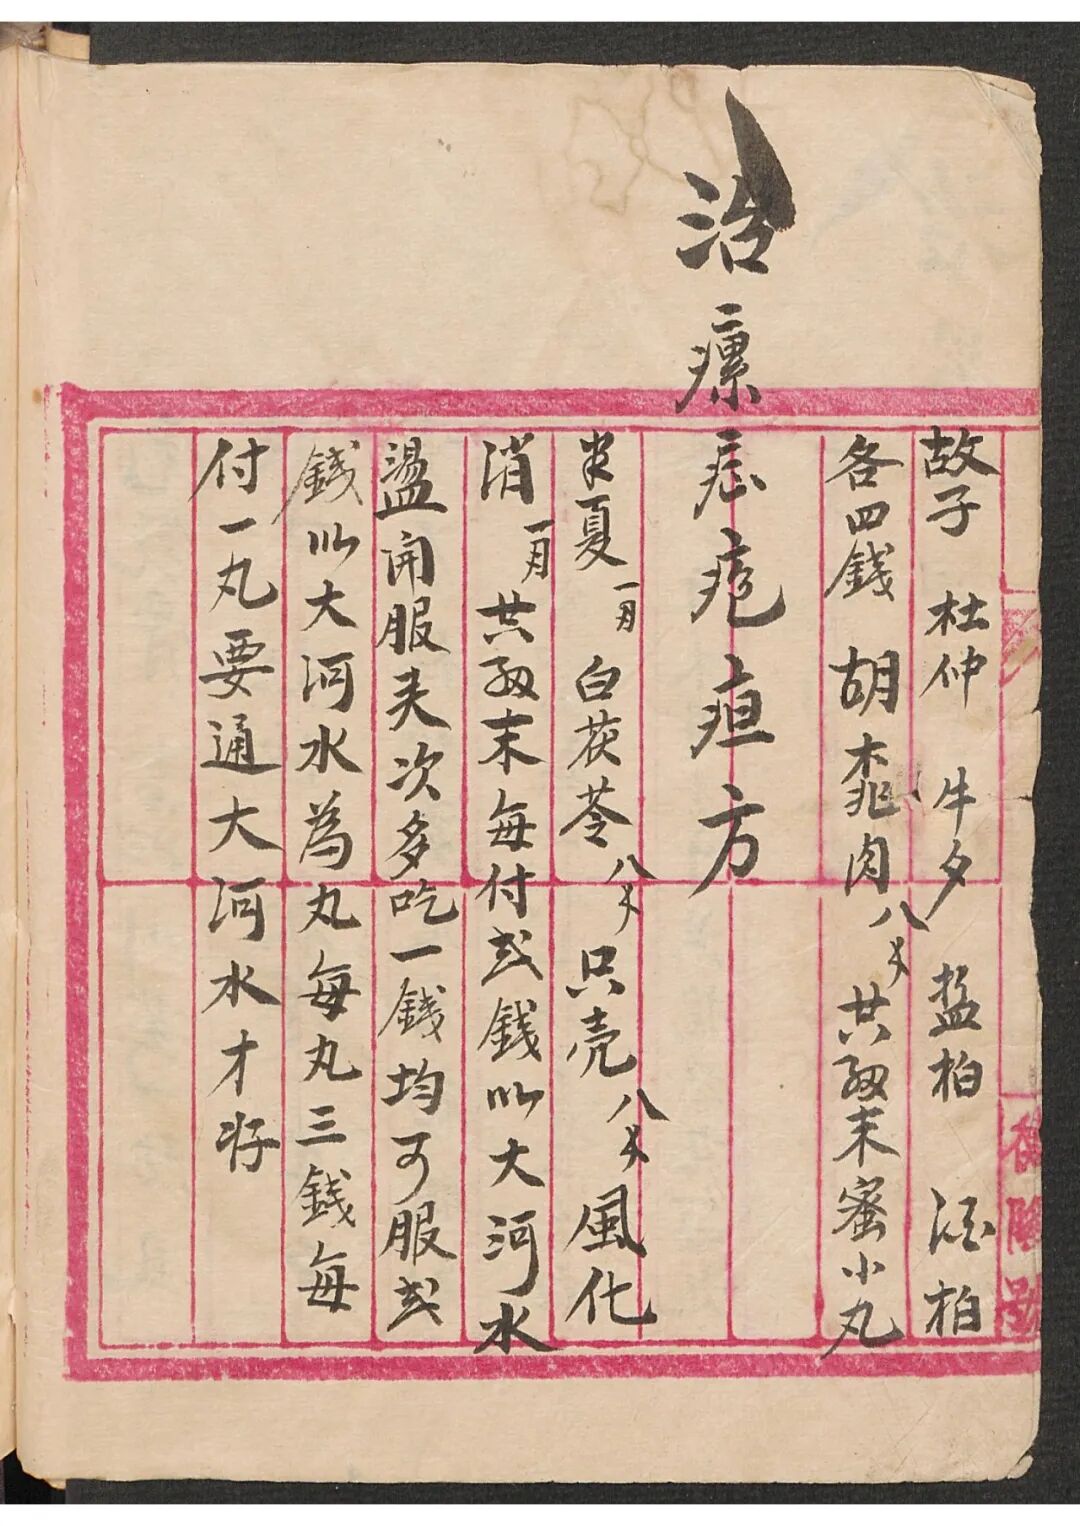 故子 杜仲 牛夕 盐柏 酒柏
各四錢 胡桃肉 八分 共爲末蜜小丸
治瘰疬疙疸方
半夏 一两 白茯苓 八分 只壳 八分 風化
消 一两 共爲末每付弍錢以大河水
盪開服夫次多吃一錢均可服弍
錢以大河水為丸每丸三錢每
付一丸要通大河水才好